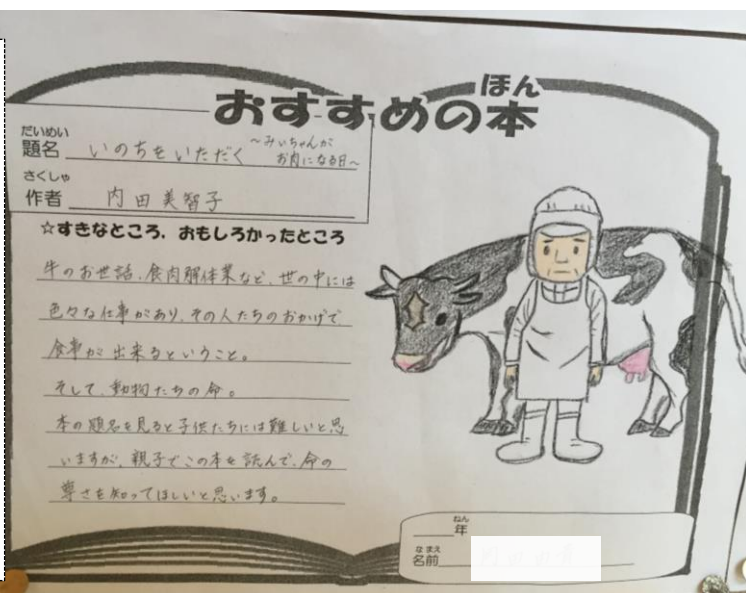 ほん
おすすめの本
だいめい
題名 いのちをいただく ～みぃちゃんが
お肉になる日～
さくしゃ
作者 内田美智子
☆すきなところ、おもしろかったところ
牛のお世話、食肉解体業など、世の中には
色々な仕事があり、その人たちのおかげで
食事が出来るということ。
そして、動物たちの命。
本の題名を見ると子供たちには難しいと思
いますが、親子でこの本を読んで、命の
尊さを知ってほしいと思います。
ねん
年
なまえ
名前